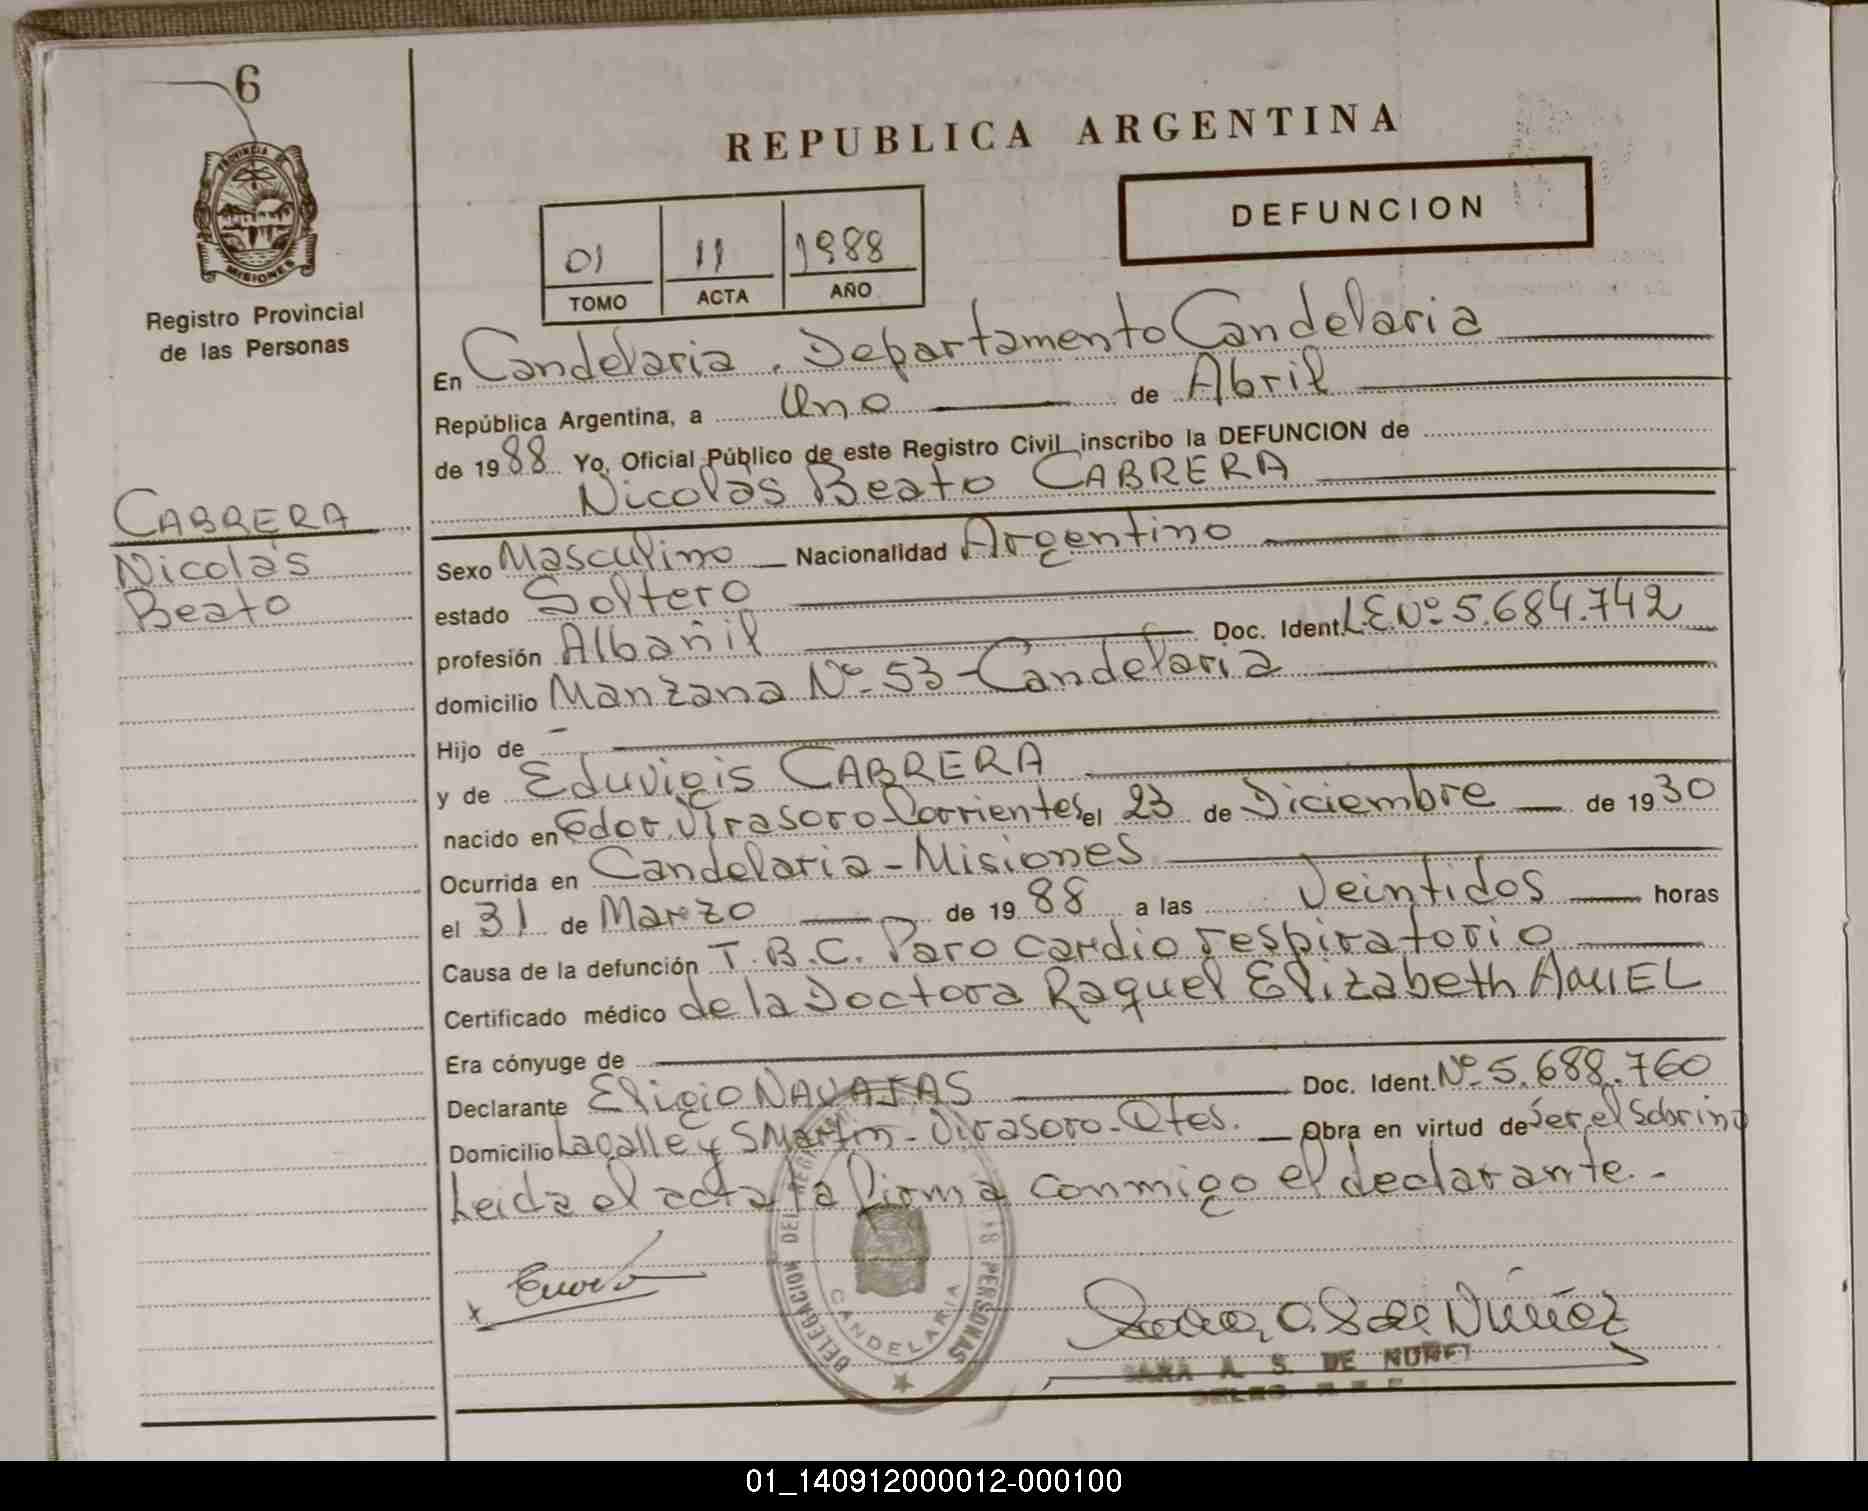 6
PROVINCIA DE
MISIONES
Registro Provincial
de las Personas
CABRERA
Nicolás
Beato
REPUBLICA ARGENTINA
DEFUNCION
01 11 1988
TOMO ACTA AÑO
En Candelaria, Departamento Candelaria
República Argentina, a Uno de Abril
de 1988 Yo, Oficial Público de este Registro Civil inscribo la DEFUNCION de
Nicolás Beato CABRERA
Sexo Masculino Nacionalidad Argentino
estado Soltero
profesión Albañil Doc. Ident. L.E.Nº 5.684.742
domicilio Manzana Nº 53 - Candelaria
Hijo de -
y de Eduvigis CABRERA
nacido en Gdor. Virasoro-Corrientes el 23 de Diciembre de 1930
Ocurrida en Candelaria - Misiones
el 31 de Marzo de 1988 a las Veintidos horas
Causa de la defunción T.B.C. Paro cardio respiratorio
Certificado médico de la Doctora Raquel Elizabeth
Era cónyuge de
Declarante Eligio NAVAJAS Doc. Ident. Nº 5.688.760
Domicilio Lagalle y S Martin - Virasoro - Ctes. Obra en virtud de ser el sobrino
Leida el acta la firma conmigo el declarante.-
DELEGACION DEL REG PERSONAS
CANDELARIA
Sara A. S. de Núñez
SARA A. S. DE NUÑEZ
01_140912000012-000100